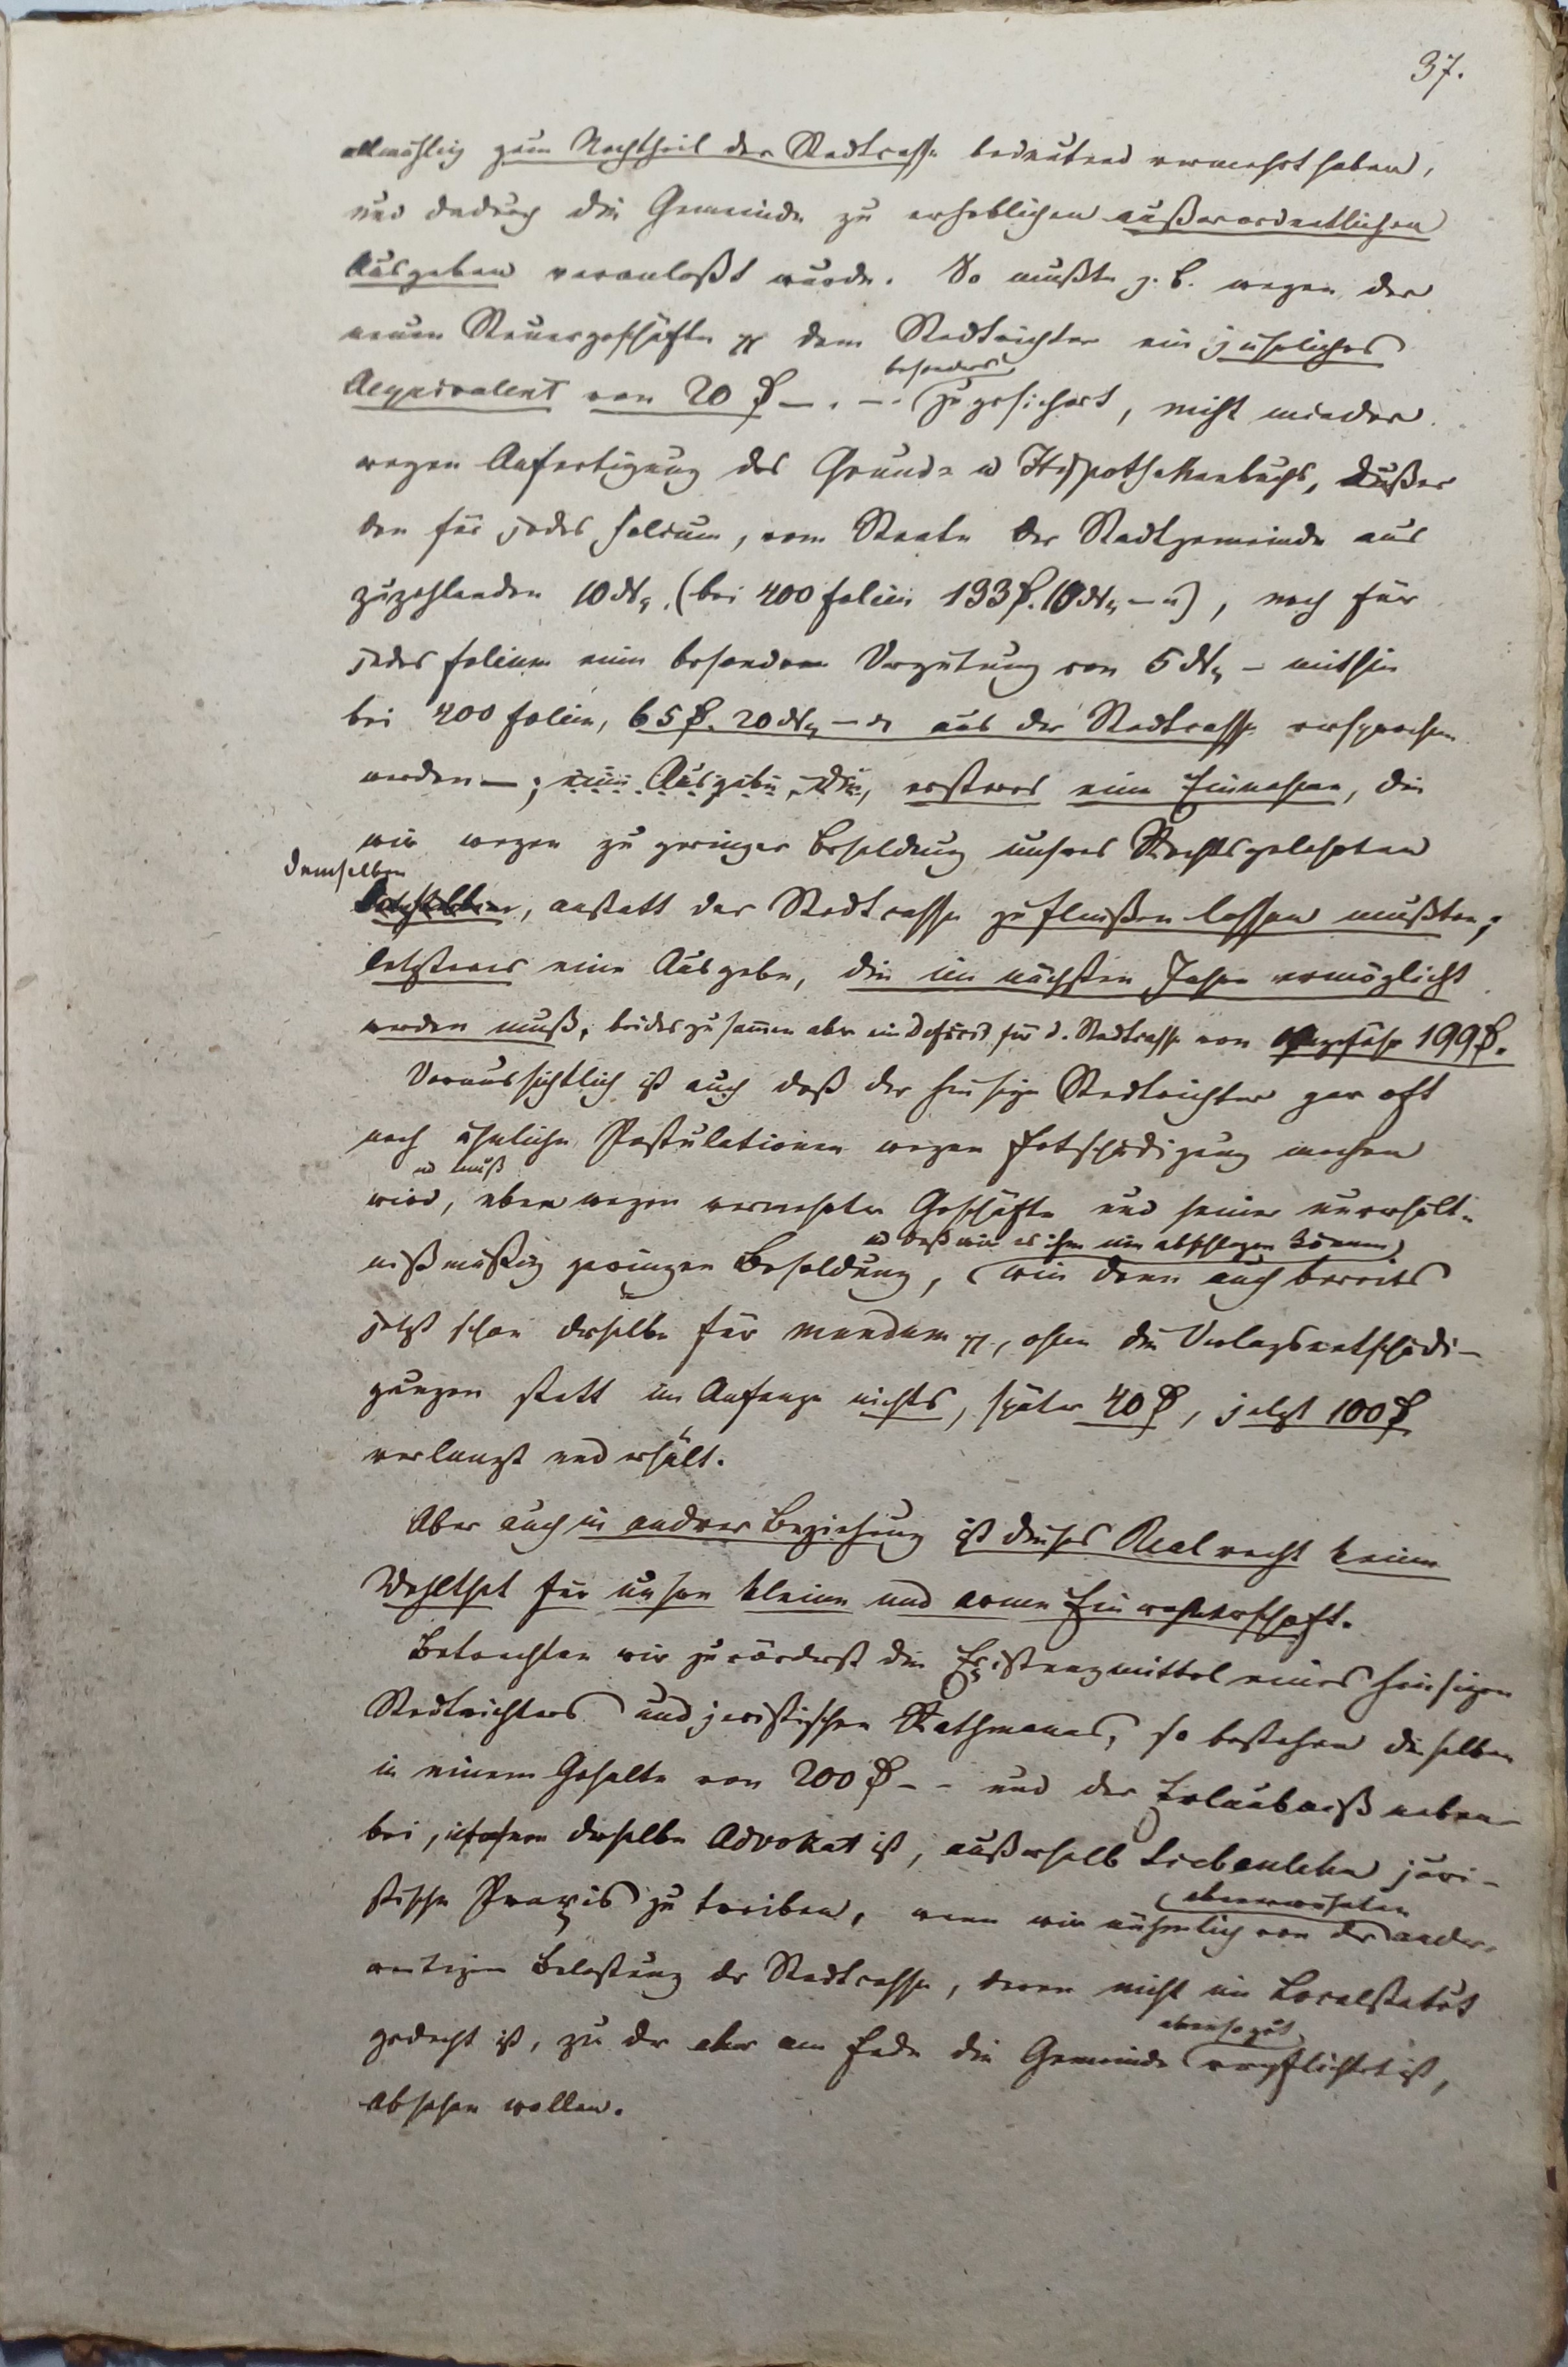 37.
allmählig zum Nachtheil der Stadtcasse bedeutend vermehrt haben,
und dadurch die Gemeinde zu erheblichen außerordentlichen
Ausgaben veranlaßt wurde. So mußte z. B. wegen der
neuen Steuergeschäfte pp dem Stadtrichter ein jährliches
besonders
Aequivalent von 20 ₰ —. —. zugesichert, nicht minder
wegen Anfertigung des Grund- u Hypothekenbuchs, außer
den für jedes folium, vom Staate der Stadtgemeinde aus
zuzahlenden 10 Ngr. (bei 400 folien 133 ₰. 10 Ngr —), noch für
jedes folium eine besondere Vergütung von 5 Ngr — mithin
bei 400 folien, 65 ₰. 20 Ngr — aus der Stadtcasse versprochen
werden —; eine Ausgabe, die, ersteres eine Einnahme, die
wir wegen zu geringer Besoldung unsres Rechtsgelehrten
demselben
, anstatt der Stadtcasse zufließen lassen mußten,
letzteres eine Ausgabe, die im nächsten Jahre ermöglicht
werden muß, beides zusammen aber ein Deficit für d. Stadtcasse von ohngefähr 199 ₰.
Voraussichtlich ist auch daß der hiesige Stadtrichter gar oft
noch ähnliche Postulationen wegen Entschädigung machen
u muß
wird, eben wegen vermehrter Geschäfte und seiner unverhält-
u daß wir es ihm nie abschlagen können,
nißmäßig geringen Besoldung, wie denn auch bereits
jetzt schon derselbe für mundum pp, ohne die Verlagsentschädi-
gungen statt im Anfange nichts, später 40 ₰, jetzt 100 ₰
verlangt und erhält.
Aber auch in andrer Beziehung ist dieses Realrecht keine
Wohlthat für unsre kleine und arme Einwohnerschaft.
Betrachten wir zuvörderst die Existenzmittel eines hiesigen
Stadtrichters und juristischen Rathmanns, so bestehen dieselben
in einem Gehalte von 200 ₰ – – und der Erlaubniß neben-
bei, insofern derselbe Advokat ist, außerhalb Siebenlehn juri-
stische Praxis zu treiben, wenn wir nähmlich von der ander-
obenerwähnten
weitigen Belastung der Stadtcasse, deren nicht im Localstatut
ebensogut
gedacht ist, zu der aber am Ende die Gemeinde verpflichtet ist,
absehen wollen.